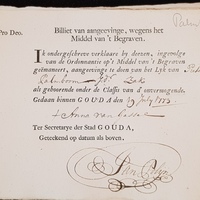 Pro Deo.
Billiet van aangeevinge, wegens het
Middel van 't Begraven.
Ik ondergeschreve verklaare by deezen, ingevolge
van de Ordonnantie op 't Middel van 't Begraven
geëmaneert, aangeevinge te doen van het Lyk van
als gehoorende onder de Classis van d'onvermogende.
Gedaan binnen GOUDA, den 29 July
Anna van
Ter Secretarye der Stad GOUDA,
Geteekend op datum als boven.